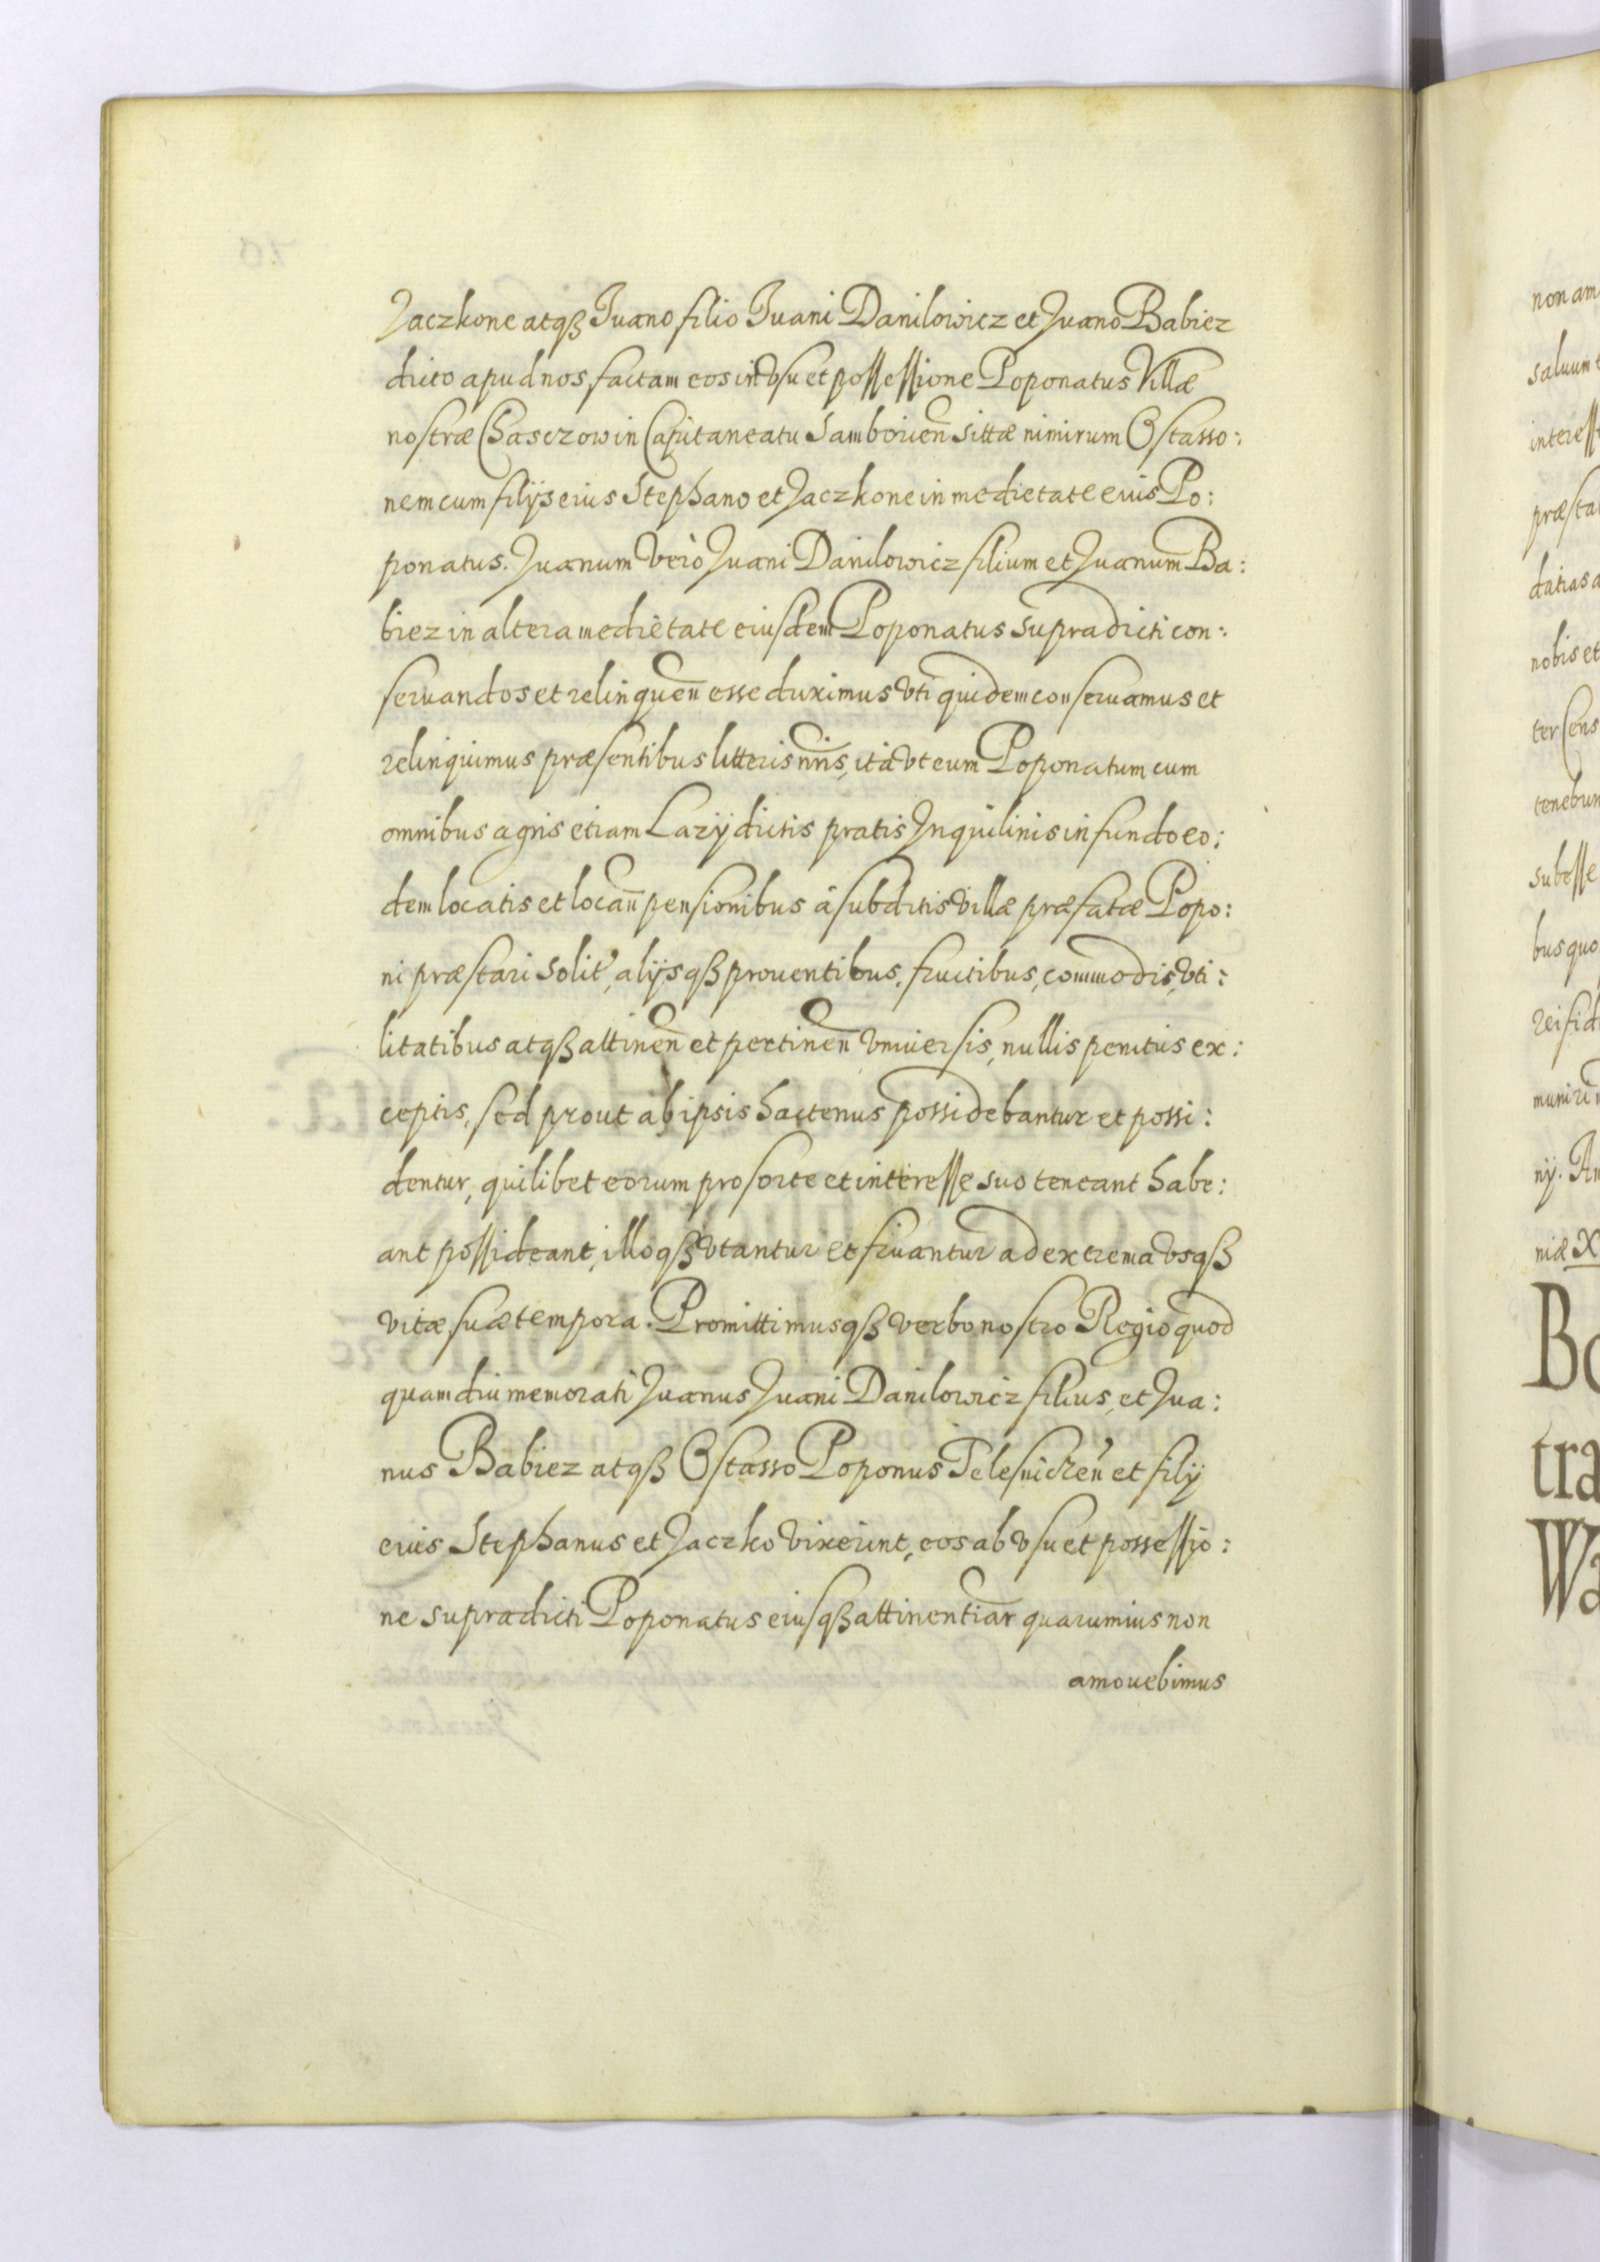 Jaczkone atqß Iuano filio Iuani Danilowicz et Juano Babiez
dicto apud nos factam eos in vsu et possessione Poponatus Villæ
nostræ Chasczow in Capitaneatu Samborien̄ sittæ nimirum Ostasso:
nem cum filijs eius Stephano et Jaczkone in medietate eius Po:
ponatus. Juanum verò Juani Danilowicz filium et Juanum Ba:
biez in altera medietate eiusdem Poponatus supradicti con:
seruandos et relinquen̄ esse duximus vti quidem conseruamus et
relinquimus præsentibus litteris nr̄is, ità vt eum Poponatum cum
omnibus agris etiam Lazÿ dictis pratis Jnquilinis in fundo eo:
dem locatis et locan̄ pensionibus à subditis villæ præfatæ Popo:
ni præstari solit', alijsqß prouentibus, fructibus, commodis, vti:
litatibus atqß attinen̄ et pertinen̄ vniuersis, nullis penitus ex:
ceptis, sed prout ab ipsis hactenus possidebantur et possi:
dentur, quilibet eorum pro sorte et interesse suo teneant habe:
ant possideant, illoqß vtantur et fruantur ad extrema vsqß
vitæ suæ tempora. Promittimusqß verbo nostro Regio quod
quamdiu memorati Juanus Juani Danilowicz filius, et Jua:
nus Babiez atqß Ostasso Poponus Telesnicken̄ et filÿ
eius Stephanus et Jaczko vixerint, eos ab vsu et possessio:
ne supradicti Poponatus eiusqß attinentiar quarumius non
amouebimus
non am
saluum
interess
præsta
datias a
nobis et
ter Cens
tenebun
subesse
bus quo
rei fid
nÿ. An
niæ X
Bo
tra
Wa